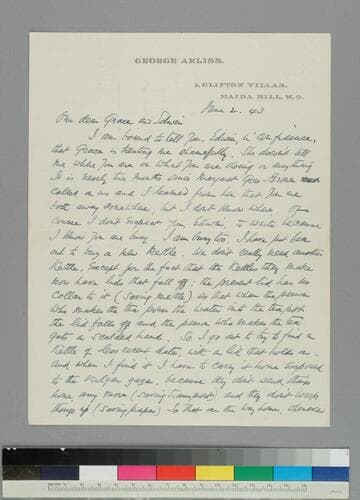 GEORGE ARLISS.
1, CLIFTON VILLAS,
MAIDA HILL, W. 9.
June 2. 43
My dear Grace and Edwin
I am bound to tell you, Edwin, in confidence,
that Grace is treating me shamefully. She doesn't tell
me where you are or what you are doing or anything
It is nearly two months since Margaret
called on us and I learned from her that you are
both away somewhere but I don't know where. Of
course I don't expect you, Edwin, to write because
I know you are busy. I am busy too. I have just been
out to buy a new Kettle. We don't really need another
Kettle, except for the fact that the Kettles they make
now have lids that fall off: the present lid has no
collar to it (saving metal) so that when the person
who makes the tea pours the water into the teapot
the lid falls off and the person who makes the tea
gets a scalded hand. So I go out to try to find a
Kettle of less recent date, with a lid that holds on.
And when I find it I have to carry it home exposed
to the vulgar gaze, because they don't send things
home any more (saving transport) and they don't wrap
things up (saving paper) So that on the way home,